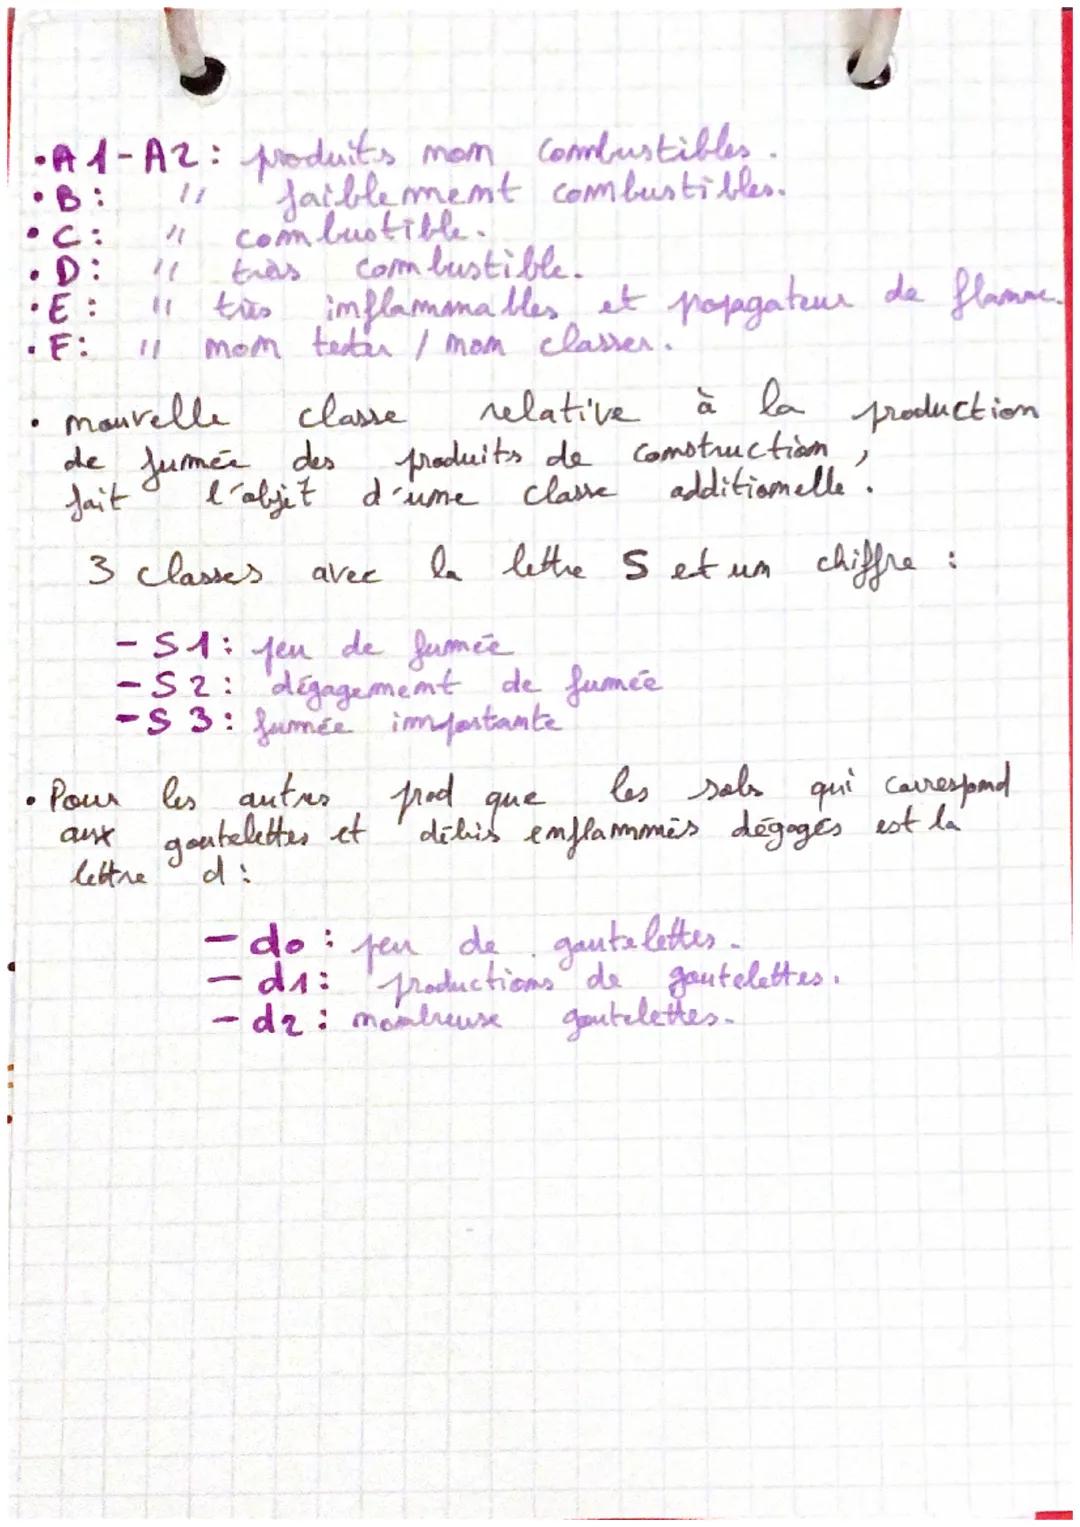 • A1-A2: produits non combustibles.
• B: " faiblement combustibles.
• C: " combustible.
• D: " très combustible.
• E: " très inflammables et propagateur de flamme.
• F: " non tester / non classer.
• nouvelle classe relative à la production
de fumée des produits de construction,
fait l'objet d'une classe additionelle.
3 classes avec la lettre S et un chiffre :
- S1: peu de fumée
- S2: dégagement de fumée
- S3: fumée importante
• Pour les autres prod que les sols qui correspond
aux goutelettes et débis enflammés dégagés est la
lettre d:
- d0: peu de goutelettes.
- d1: productions de goutelettes.
- d2: nombreuse goutelettes.